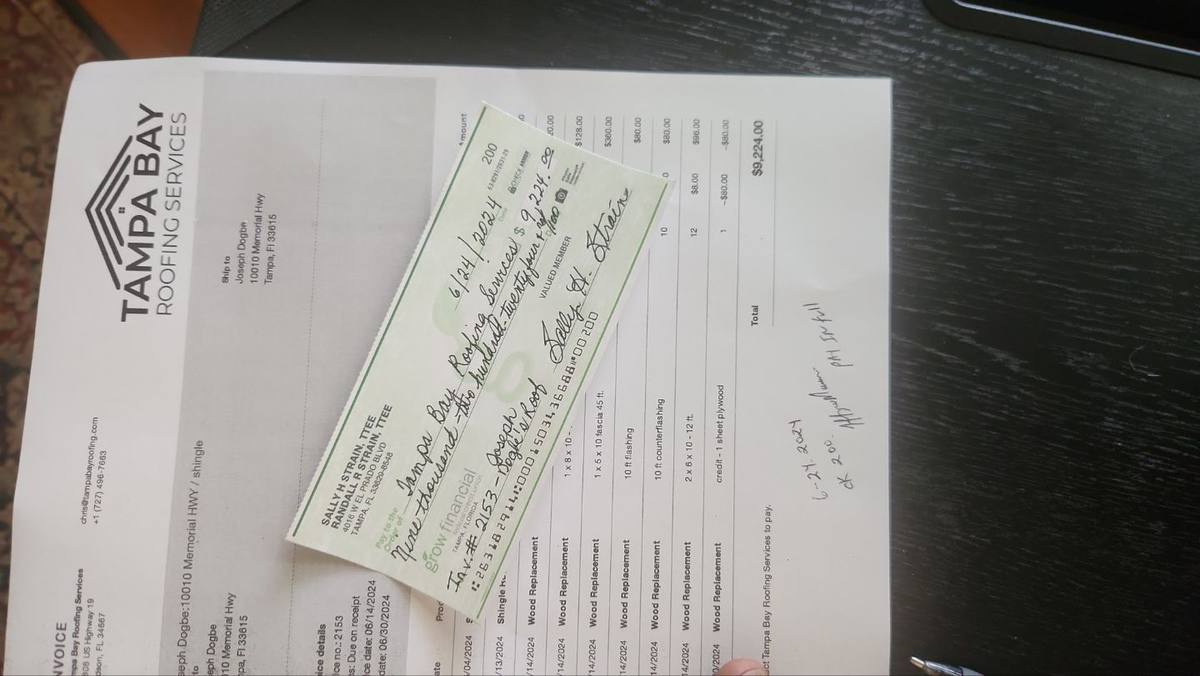 TAMPA BAY
ROOFING SERVICES
NVOICE
mpa Bay Roofing Services
US Highway 19
FL 34667
chris@tampabayroofing.com
+1 (727) 496-7663
seph Dogbe:10010 Memorial HWY / shingle
to
seph Dogbe
10 Memorial Hwy
mpa, Fl 33615
Ship to
Joseph Dogbe
10010 Memorial Hwy
Tampa, Fl 33615
ice details
ice no.: 2153
s: Due on receipt
ce date: 06/14/2024
date: 06/30/2024
SALLY H STRAIN, TTEE
RANDALL R STRAIN, TTEE
4016 W EL PRADO BLVD
TAMPA, FL 33629-8548
200
6/24/2024
Pay to the
Order of Tampa Bay Roofing Services $ 9,224.00
Nine thousand - two hundred - twenty four &
grow financial
TAMPA, FLORIDA
VALUED MEMBER
Inv. # 2153 - Joseph Dogbe's Roof Sally H. Strain
ate Prod mount
/04/2024
/13/2024 Shingle
/14/2024 Wood Replacement
/14/2024 Wood Replacement 1 x 8 x 10 - $128.00
/14/2024 Wood Replacement 1 x 5 x 10 fascia 45 ft. $360.00
/14/2024 Wood Replacement 10 ft flashing $80.00
/14/2024 Wood Replacement 10 ft counterflashing 10 $80.00
/14/2024 Wood Replacement 2 x 6 x 10 - 12 ft. 12 $8.00 $96.00
/2024 Wood Replacement credit - 1 sheet plywood 1 -$80.00 -$80.00
Total $9,224.00
ct Tampa Bay Roofing Services to pay.
6-24-2024
ck 200. PAY IN full